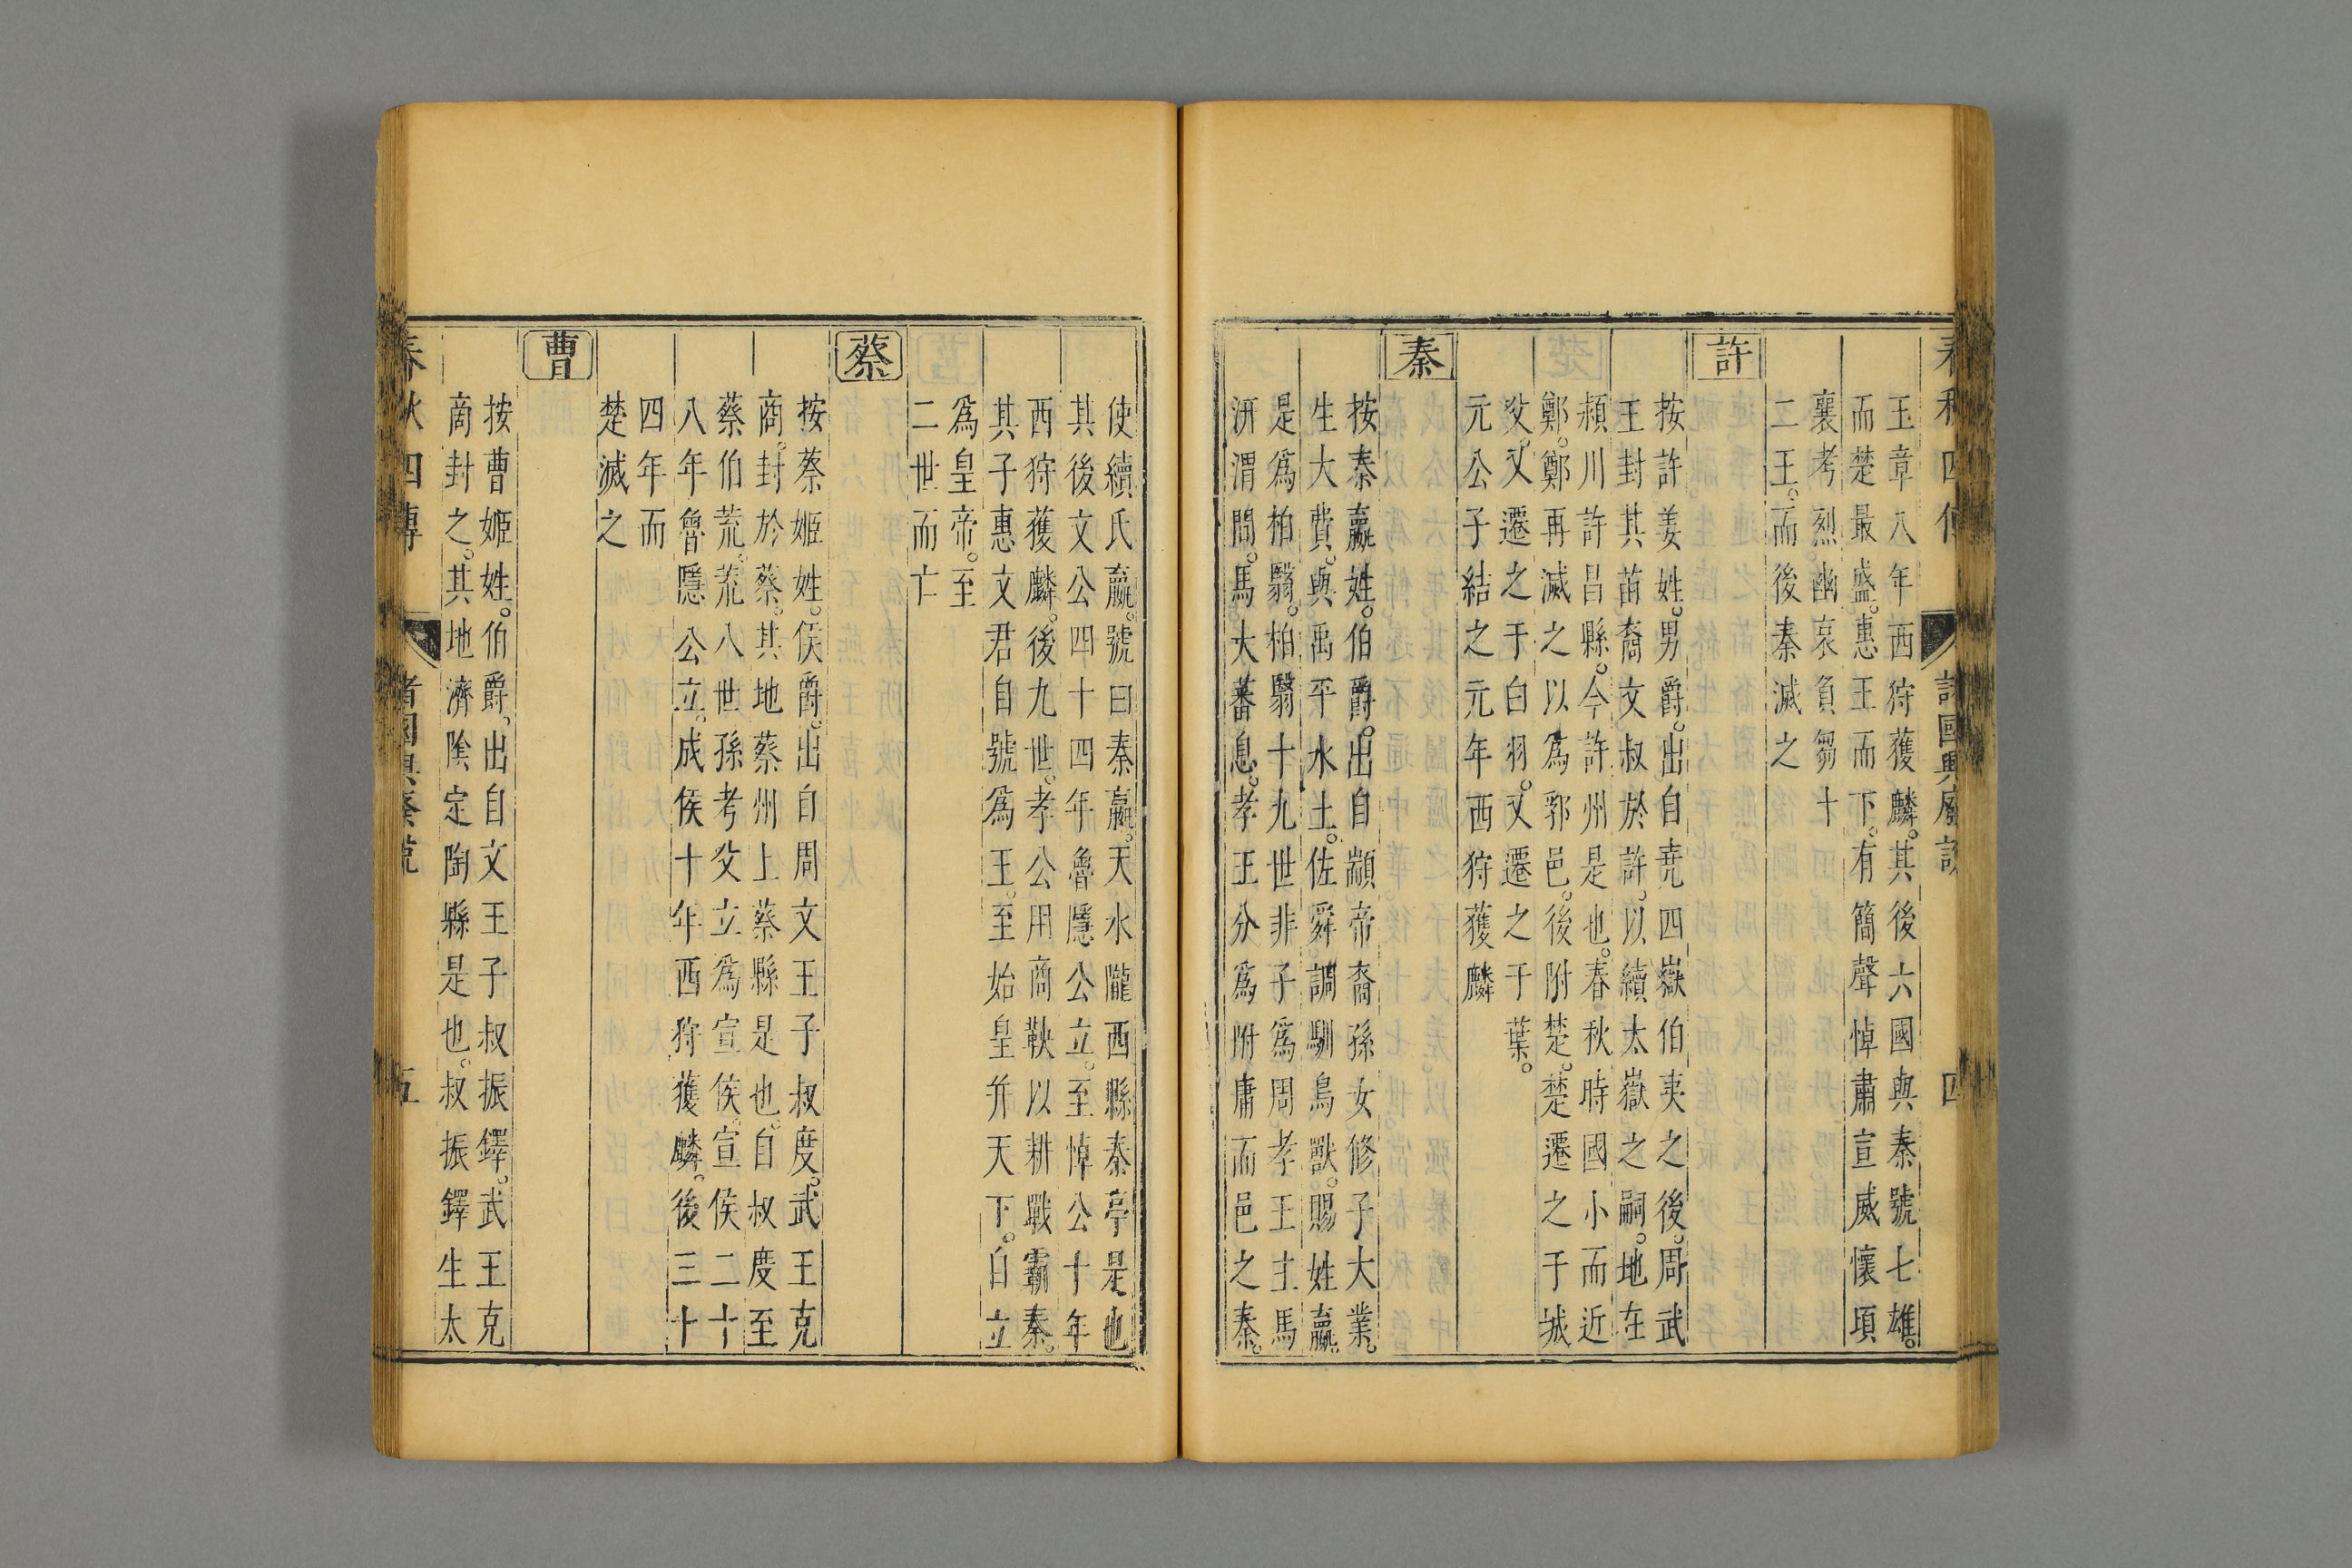 王章八年西狩獲麟。其後六國與秦號七雄。
而楚最盛。惠王而下。有簡聲悼肅宣威懷頃
襄考烈幽哀負芻十
二王。而後秦滅之
許
按許姜姓。男爵。出自堯四嶽伯夷之後。周武
王封其苗裔文叔於許。以續太嶽之嗣。地在
潁川許昌縣。今許州是也。春秋時國小而近
鄭。鄭再滅之以爲郛邑。後附楚。楚遷之于城
父。又遷之于白羽。又遷之于葉。
元公子結之元年西狩獲麟
秦
按秦嬴姓。伯爵。出自顓帝裔孫女修子大業。
生大費。與禹平水土。佐舜。調馴鳥獸。賜姓嬴。
是爲柏翳。柏翳十九世非子爲周孝王主馬
汧渭間。馬大蕃息。孝王分爲附庸而邑之秦。
使續氏嬴。號曰秦嬴。天水隴西縣秦亭是也
其後文公四十四年魯隱公立。至悼公十年
西狩獲麟。後九世。孝公用商鞅以耕戰霸秦。
其子惠文君自號爲王。至始皇并天下。自立
爲皇帝。至
二世而亡
蔡
按蔡姬姓。侯爵。出自周文王子叔度。武王克
商。封於蔡。其地蔡州上蔡縣是也。自叔度至
蔡伯荒。荒八世孫考父立爲宣侯。宣侯二十
八年魯隱公立。成侯十年西狩獲麟。後三十
四年而
楚滅之
曹
按曹姬姓。伯爵。出自文王子叔振鐸。武王克
商封之。其地濟陰定陶縣是也。叔振鐸生太
春秋四傳
五